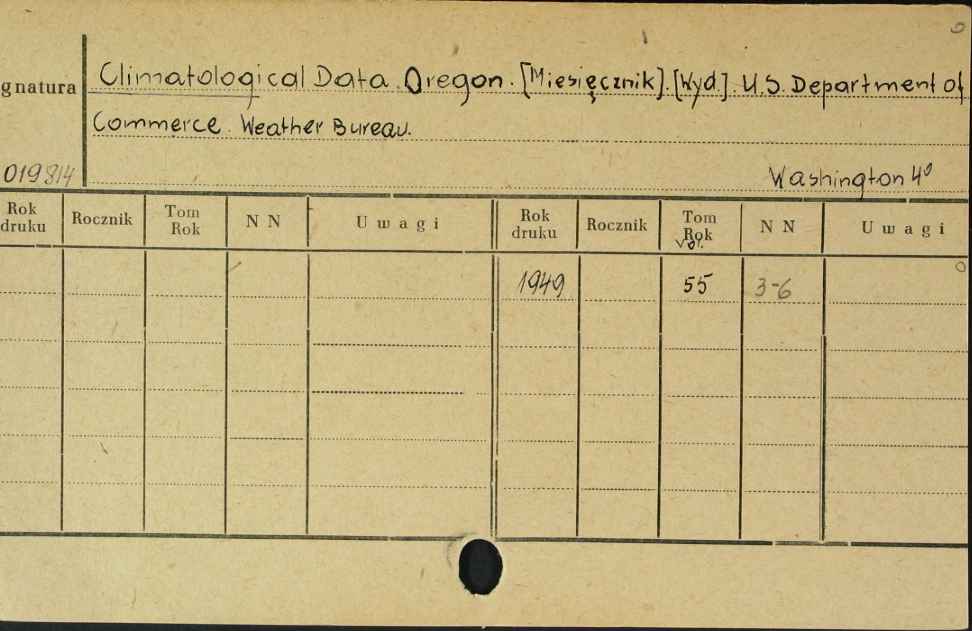 gnatura
Climatological Data. Oregon. [Miesięcznik]. [Wyd.]. U.S. Department of
Commerce. Weather Bureau.
019814
Washington 4°
Rok druku Rocznik Tom Rok NN Uwagi Rok druku Rocznik Tom Rok NN Uwagi
vol.
1949 55 3-6